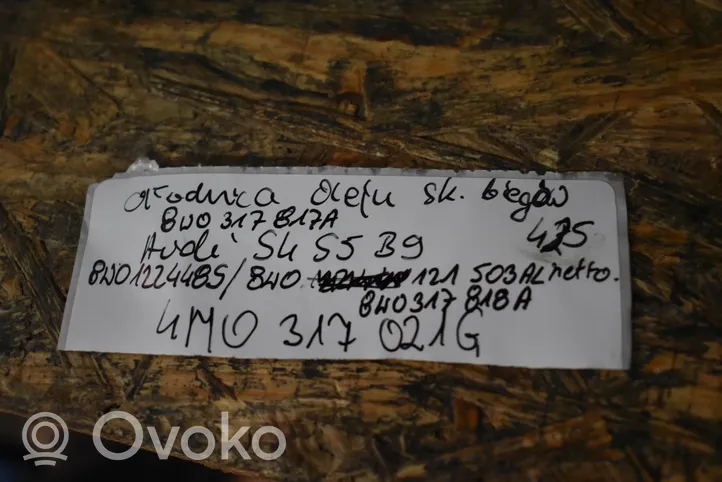 chłodnica oleju sk. biegów
8W0 317 817A
Audi S4 S5 B9 425
8W0122448S/8W0 121 503AL netto.
8W0317 818A
4M0 317 021G
Ovoko